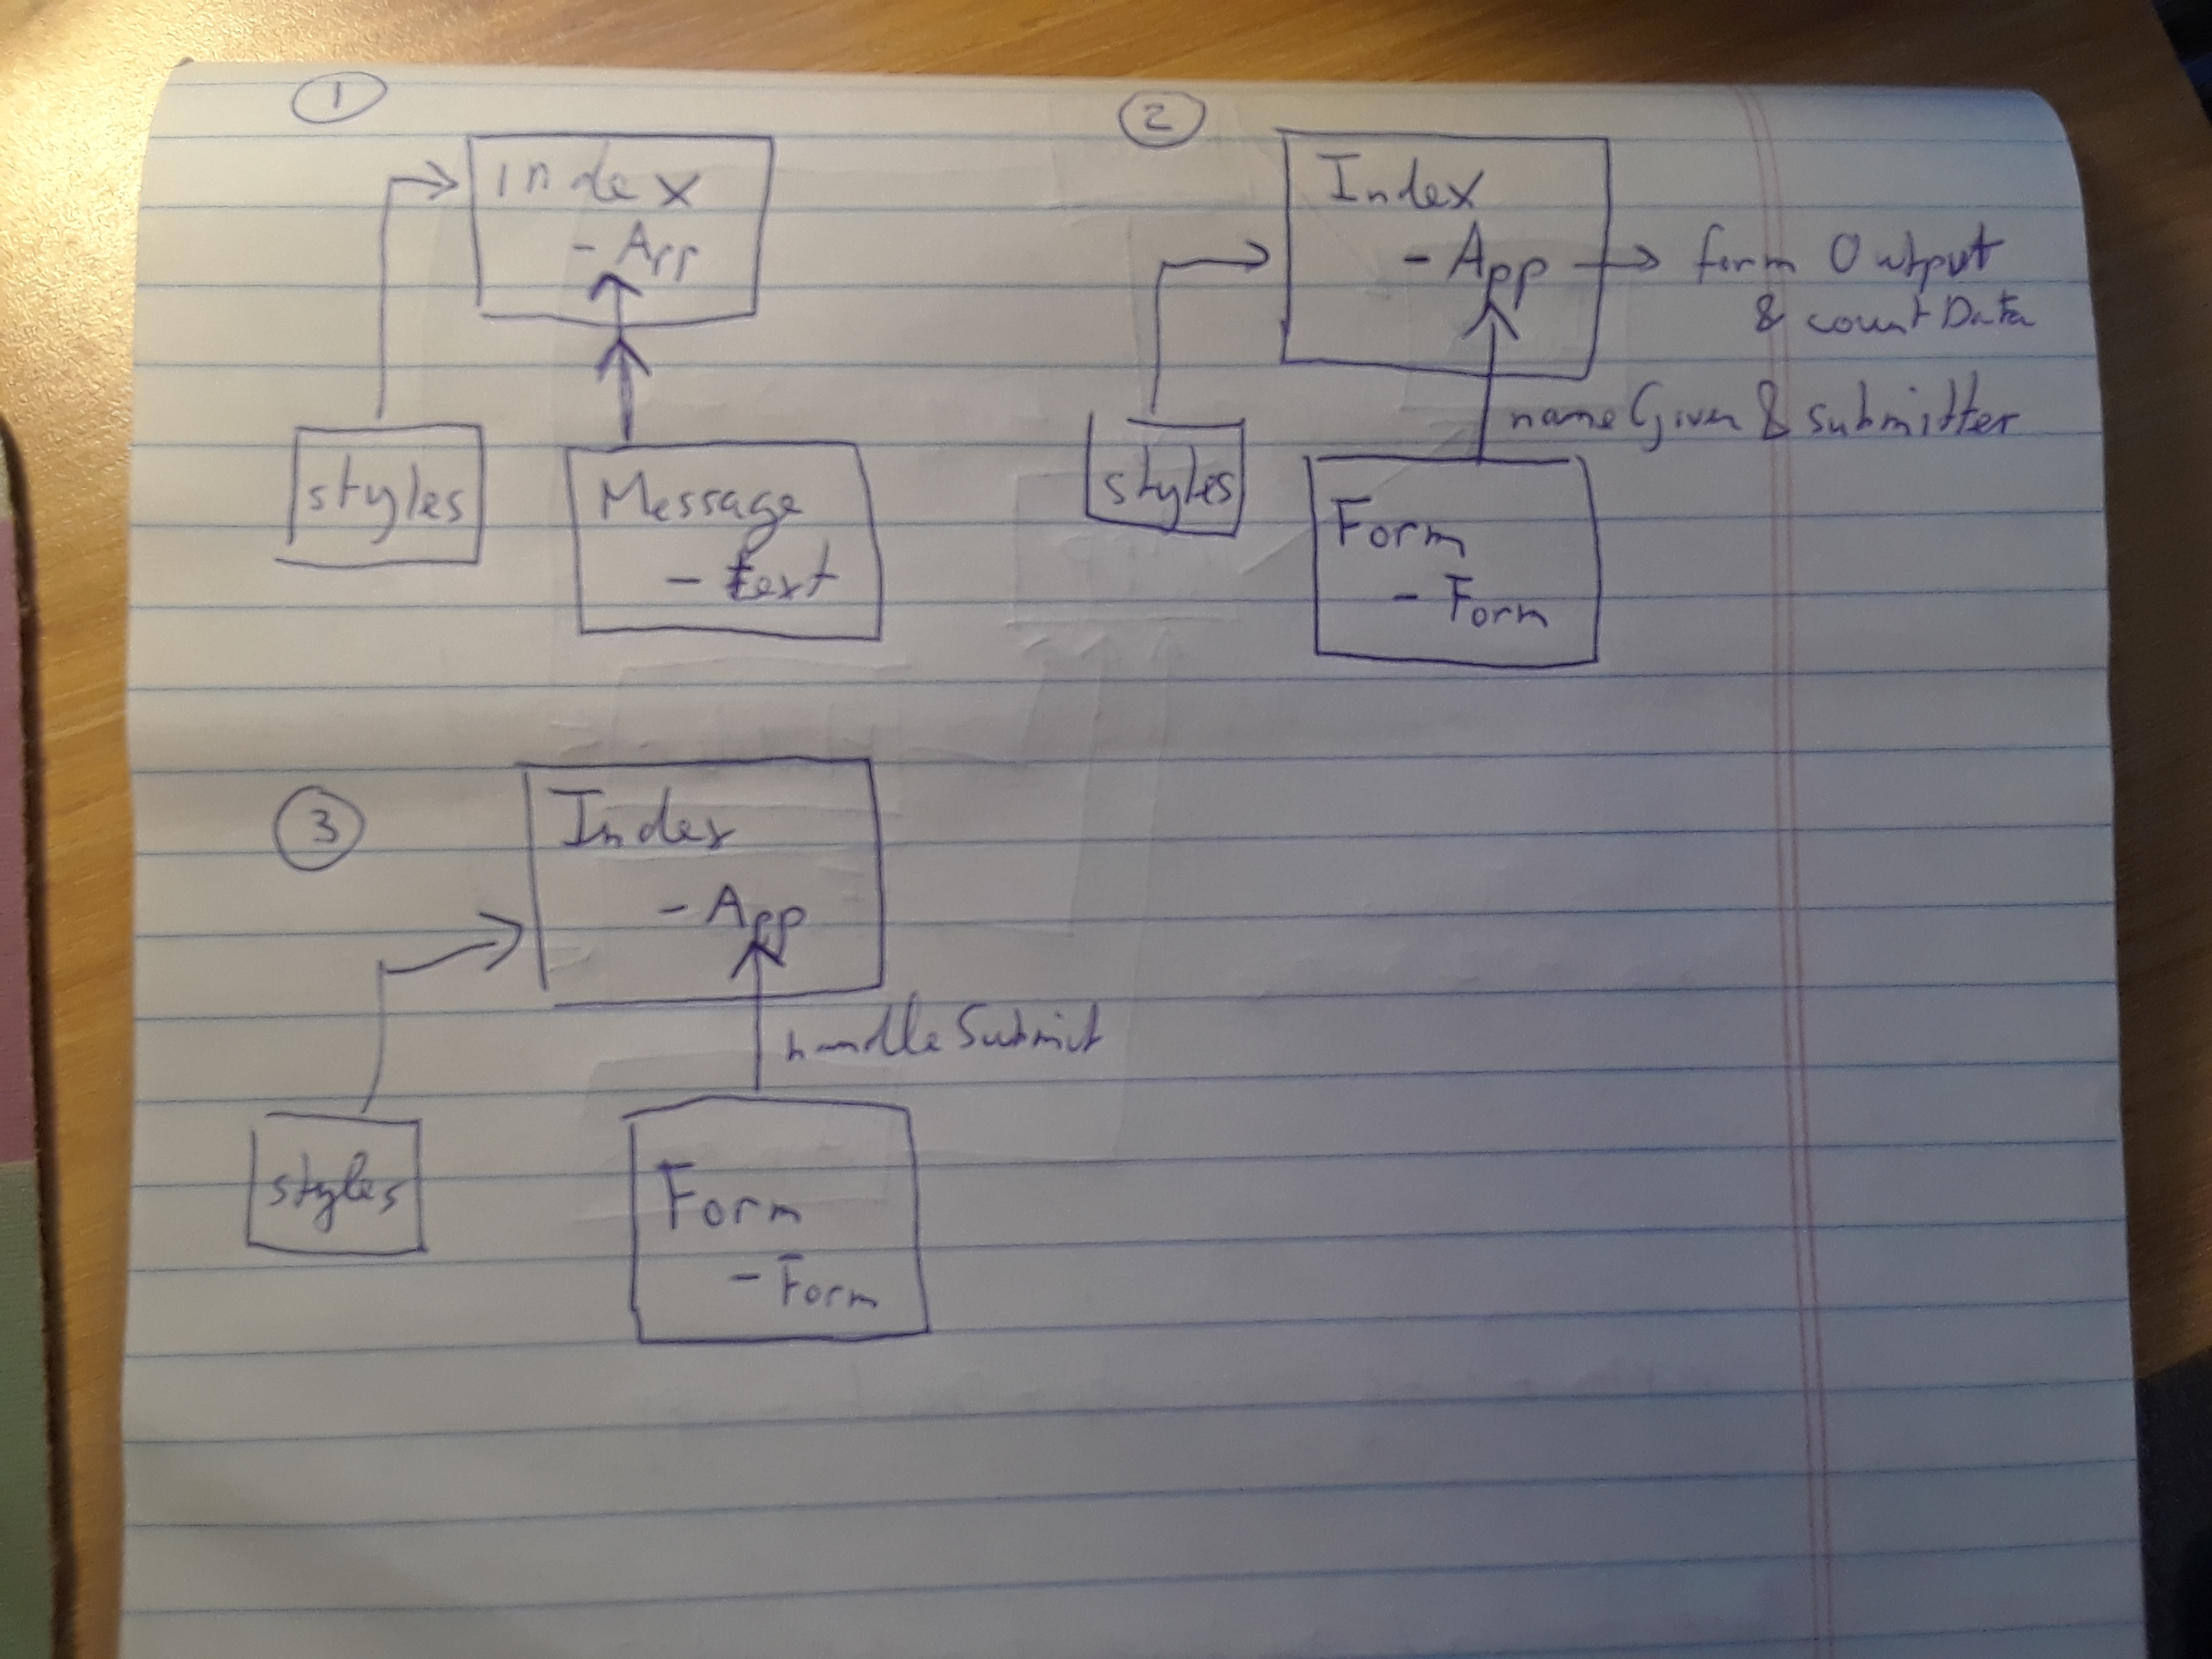 1
index
- App
styles
Message
- text
2
Index
- App
form Output
& countData
nameGiven & submitter
styles
Form
- Form
3
Index
- App
handleSubmit
styles
Form
- Form